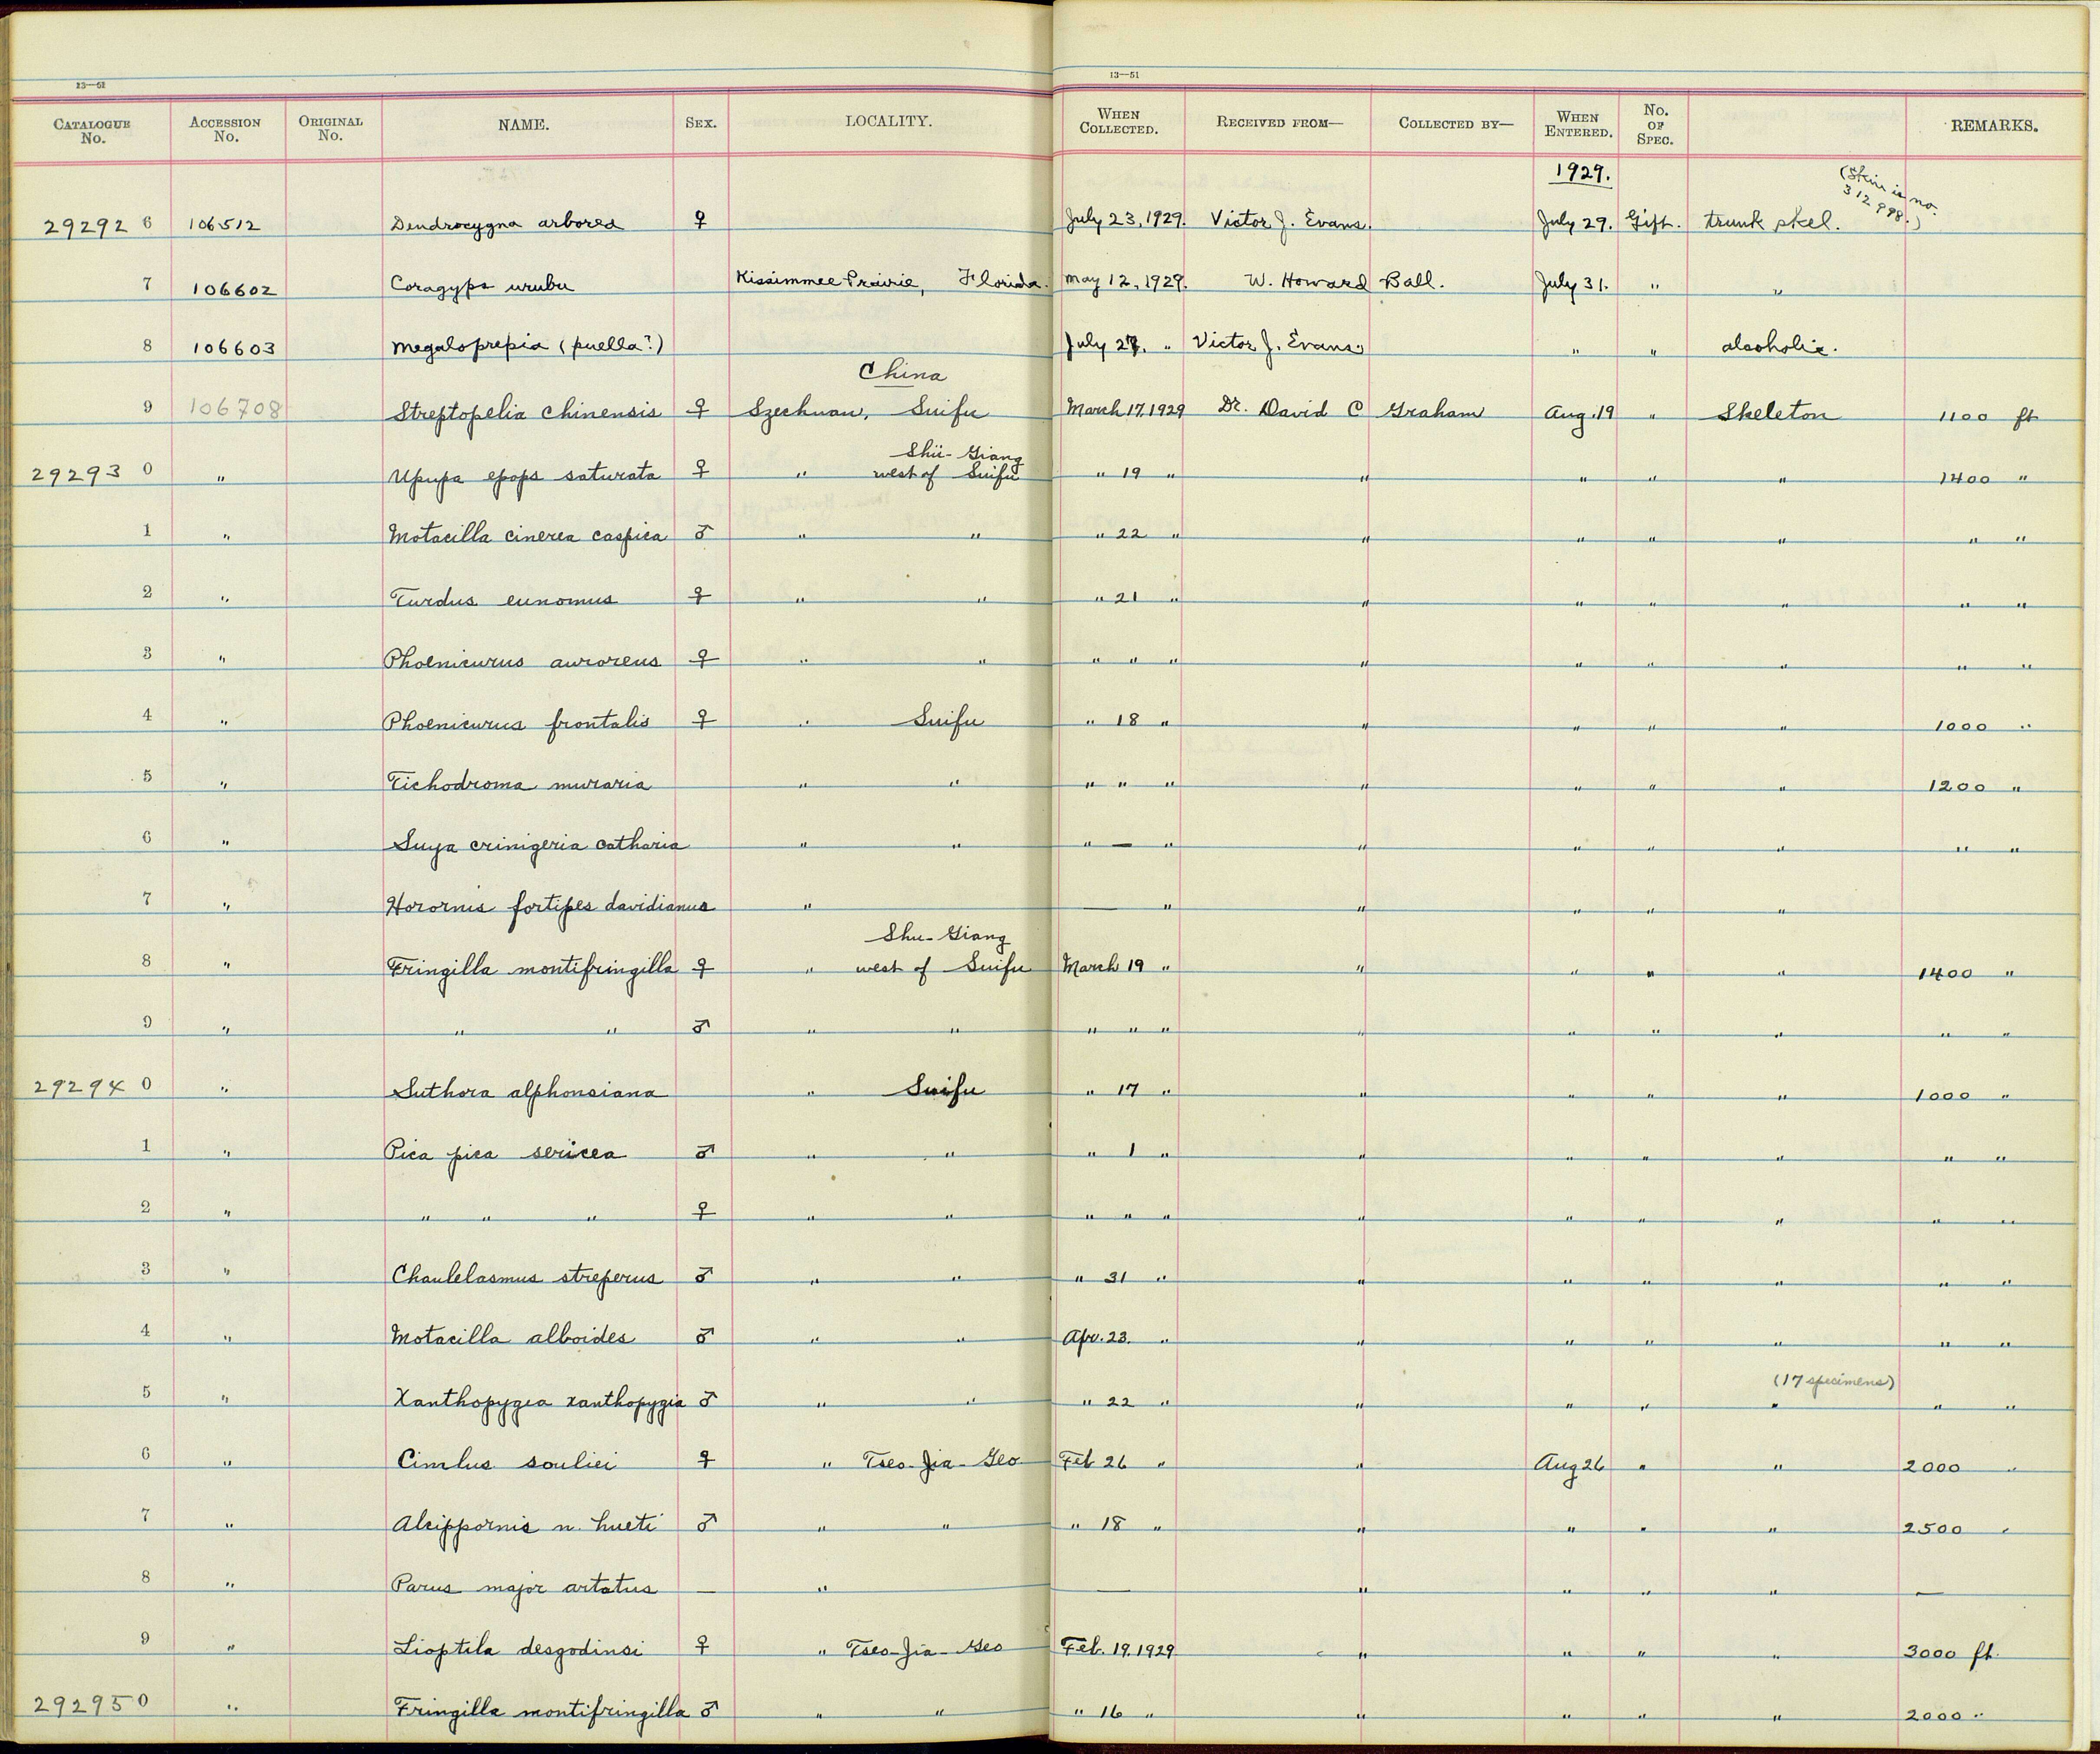 13—51
13—51
CATALOGUE No. ACCESSION No. ORIGINAL No. NAME. SEX. LOCALITY. WHEN COLLECTED. RECEIVED FROM— COLLECTED BY— WHEN ENTERED. No. OF SPEC. REMARKS.
1929.
(Skin is no. 312998.)
29292 6 106512 Dendrocygna arborea ♀ July 23, 1929. Victor J. Evans. July 29. Gift. trunk skel.
7 106602 Coragyps urubu Kissimmee Prairie, Florida. May 12, 1929. W. Howard Ball. July 31. " "
8 106603 Megaloprepia (puella?) July 27. " Victor J. Evans. " " alcoholic.
China
9 106708 Streptopelia chinensis ♀ Szechuan, Suifu March 17, 1929 Dr. David C Graham Aug. 19 " Skeleton 1100 ft
Shü-Giang
29293 0 " Upupa epops saturata ♀ " west of Suifu " 19 " " " " " 1400 "
1 " Motacilla cinerea caspica ♂ " " " 22 " " " " " " "
2 " Turdus eunomus ♀ " " " 21 " " " " " " "
3 " Phoenicurus auroreus ♀ " " " " " " " " " " "
4 " Phoenicurus frontalis ♀ " Suifu " 18 " " " " " 1000 "
5 " Tichodroma muraria " " " " " " " " " 1200 "
6 " Suya crinigeria catharia " " " — " " " " " " "
7 " Horornis fortipes davidianus " — " " " " "
Shu-Giang
8 " Fringilla montifringilla ♀ " west of Suifu March 19 " " " " " 1400 "
9 " " " ♂ " " " " " " " " " " "
29294 0 " Suthora alphonsiana " Suifu " 17 " " " " " 1000 "
1 " Pica pica sericea ♂ " " " 1 " " " " " " "
2 " " " " ♀ " " " " " " " " " " "
3 " Chaulelasmus streperus ♂ " " " 31 " " " " " " "
4 " Motacilla alboides ♂ " " Apr. 23. " " " " " " "
(17 specimens)
5 " Xanthopygia xanthopygia ♂ " " " 22 " " " " " " "
6 " Cinclus souliei ♀ " Tseo-Jia-Geo Feb 26 " " Aug 26 " " 2000 "
7 " Alcippornis n. hueti ♂ " " " 18 " " " " " 2500 "
8 " Parus major artatus — " — " " " " —
9 " Lioptila desgodinsi ♀ " Tseo-Jia-Geo Feb. 19, 1929 " " " " 3000 ft.
29295 0 " Fringilla montifringilla ♂ " " " 16 " " " " " 2000 "